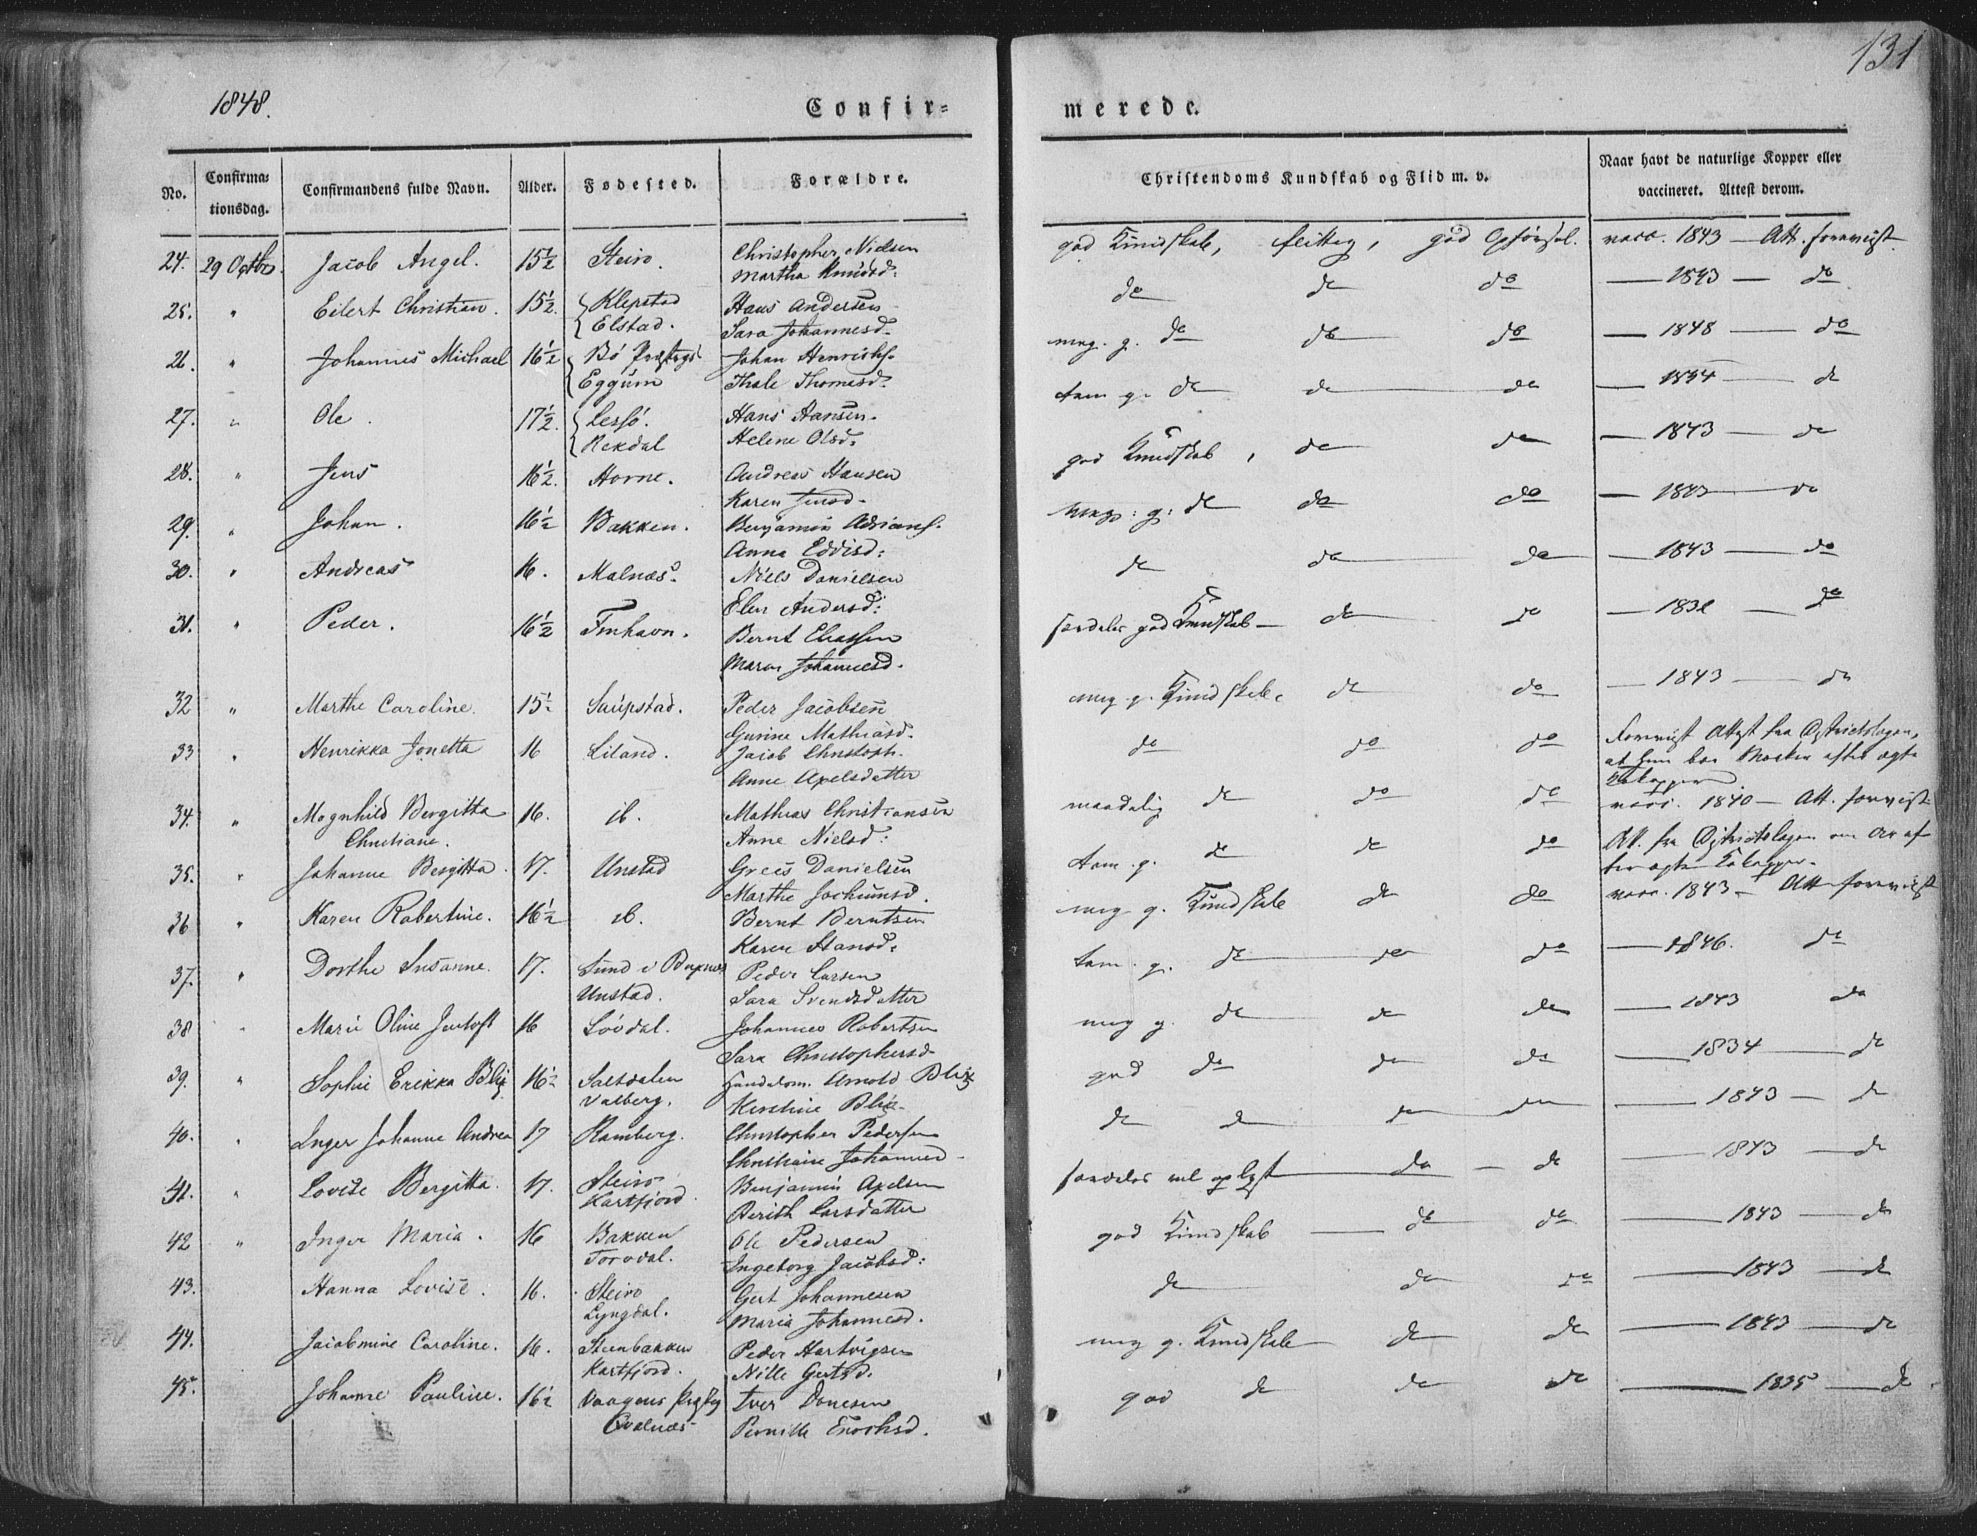 1848.
Confir=
merede.
131
No.
Confirma-
tionsdag.
Confirmandens fulde Navn.
Alder.
Fødested.
Forældre.
Christendoms Kundskab og Flid m. v.
Naar havt de naturlige Kopper eller
vaccineret. Attest derom.
24. 29 Octbr. Jacob Angel. 15½ Steiro. Christopher Nielsen god Kundskab, flittig, god Opførsel. vacc. 1843 — Att. foreviist
Martha Knudsd:
25. " Eilert Christian. 15½. Klepstad Hans Andersen do do do — 1843 — do
Elstad. Sara Johannesd.
26. " Johannes Michael 16½ Bö Præstegd Johan Henrichs. meg. g. do do do — 1848 — do
Eggum Thale Thomasd.
27. " Ole. 17½. Lessö. Hans Hansen. tem. g. do do do — 1834 — do
Rekdal Helene Olsd.
28. " Jens 16½. Horne. Andreas Hansen god Kundskab, do do — 1843 — do
Karen Jensd.
29. " Johan. 16½ Bakken. Benjamin Adrians. meg: g: do do do — 1843 — do
Anna Eddisd:
30. " Andreas 16. Malnæs. Niels Danielsen do do do — 1843 — do
Elen Andersd:
31. " Peder. 16½ Finhavn. Bernt Eliassen særdeles god Kundskab — do do — do
Maren Johannesd.
32 " Marthe Caroline. 15½ Saupstad. Peder Jacobsen meg g. Kundskab, do do — 1843 — do
Gurine Mathiasd.
33 " Henrikka Jonetta 16 Liland. Jacob Christoph. do do do foreviist Attest fra Districtslægen,
Anne Axelsdatter at hun har Mærker efter ægte
Kokopper
34. " Magnhild Bergitta 16. ib. Mathias Christiansen maadelig do do do vacc. 1840 — Att. foreviist
Christiane. Anne Nielsd:
35. " Johanne Bergitta. 17. Unstad Greis Danielsen tem. g. do do do Att. fra Districtslægen om Ar ef-
Marthe Jochumsd. ter ægte Kokopper.
36 " Karen Robertine. 16½ ib. Bernt Berntsen meg g. Kundskab do do vacc. 1843 — Att foreviist
Karen Hansd.
37. " Dorthe Susanne. 17. Sund i Buxnæs Peder Larsen tem. g. do do do — 1846. do
Unstad. Sara Svendsdatter
38 " Marie Oline Jentoft 16 Lövdal. Johannes Robertsen meg g. do do do — 1843 do
Sara Christophersd
39. " Sophie Erikka Blix 16½ Saltdalen Handelsm. Arnold Blix god do do do — 1834 — do
Valberg. Kirstine Blix
40. " Inger Johanne Andrea 17 Ramberg. Christopher Pedersen do do do do — 1843 — do
Christiane Johannesd
41. " Lovise Bergitta. 17. Steiro Benjamin Axelsen særdeles vel oplyst — do — do — 1843 — do
Kartfjord. Berith Larsdatter
42 " Inger Maria. 16 Bakken Ole Pedersen god Kundskab — do do — 1843 — do
Torvdal. Ingeborg Jacobsd:
43. Hanna Lovise. 16. Steiro Gert Johannesen do do do — 1843 — do
Lyngdal. Maria Johannesd.
44. Jacobmine Caroline. 16. Steenbakken Peder Hartvigsen meg g. Kundskab do do — 1843 — do
Kartfjord. Nille Gertsd.
45. Johanne Pauline. 16½ Vaagens Præstg Iver Donesen god do do do — 1835 — do
Qvalnæs Pernille Enochsd.